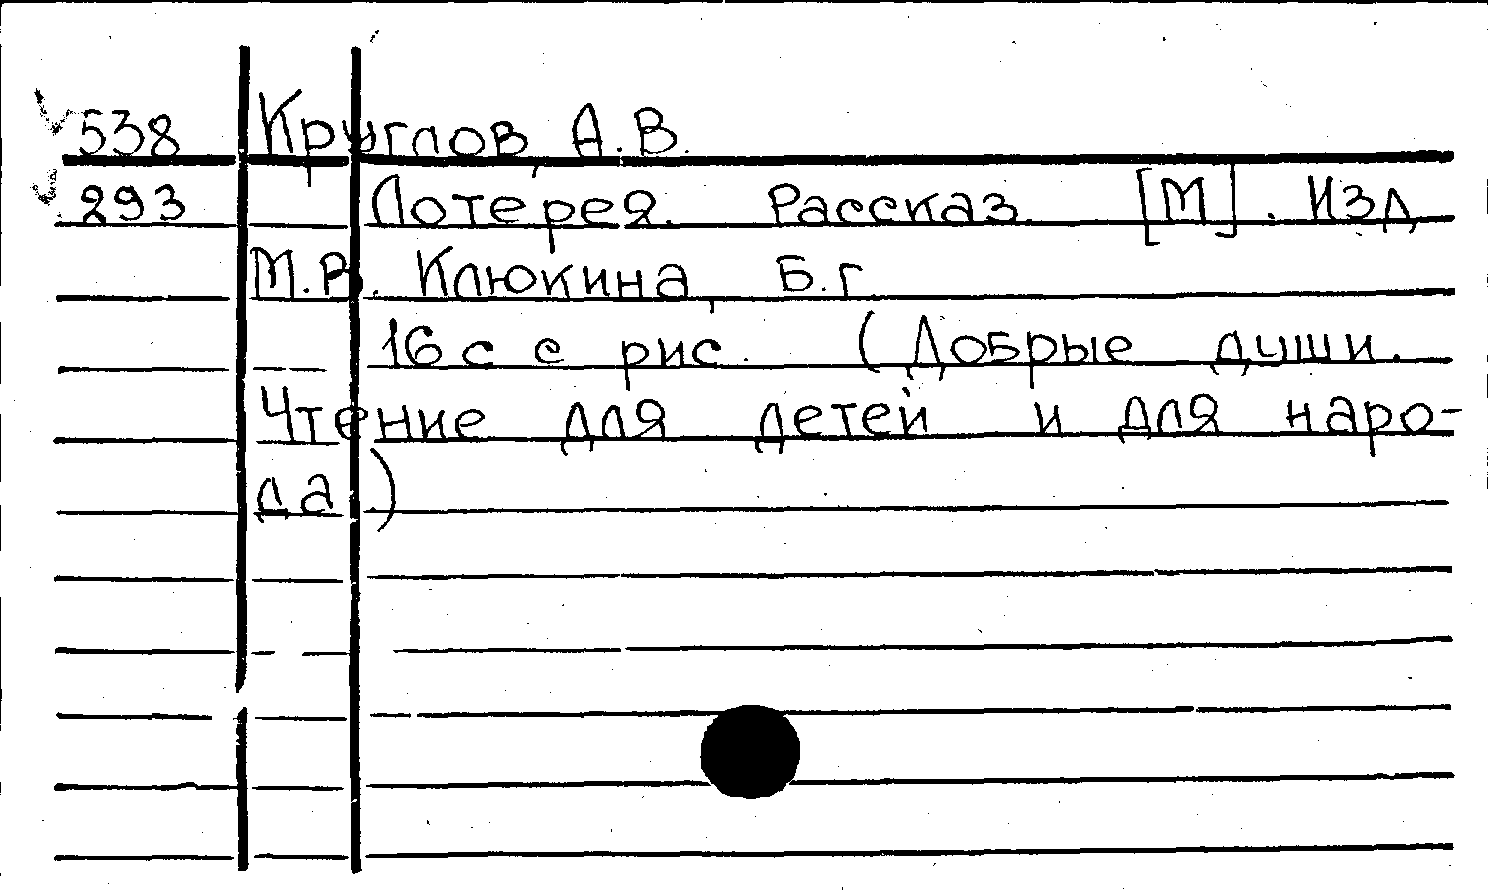 538 Круглов, А.В.
293 Лотерея. Рассказ. [М]. Изд
М.В. Клюкина, Б.г
16 с с рис. (Добрые души.
Чтение для детей и для наро-
да.)